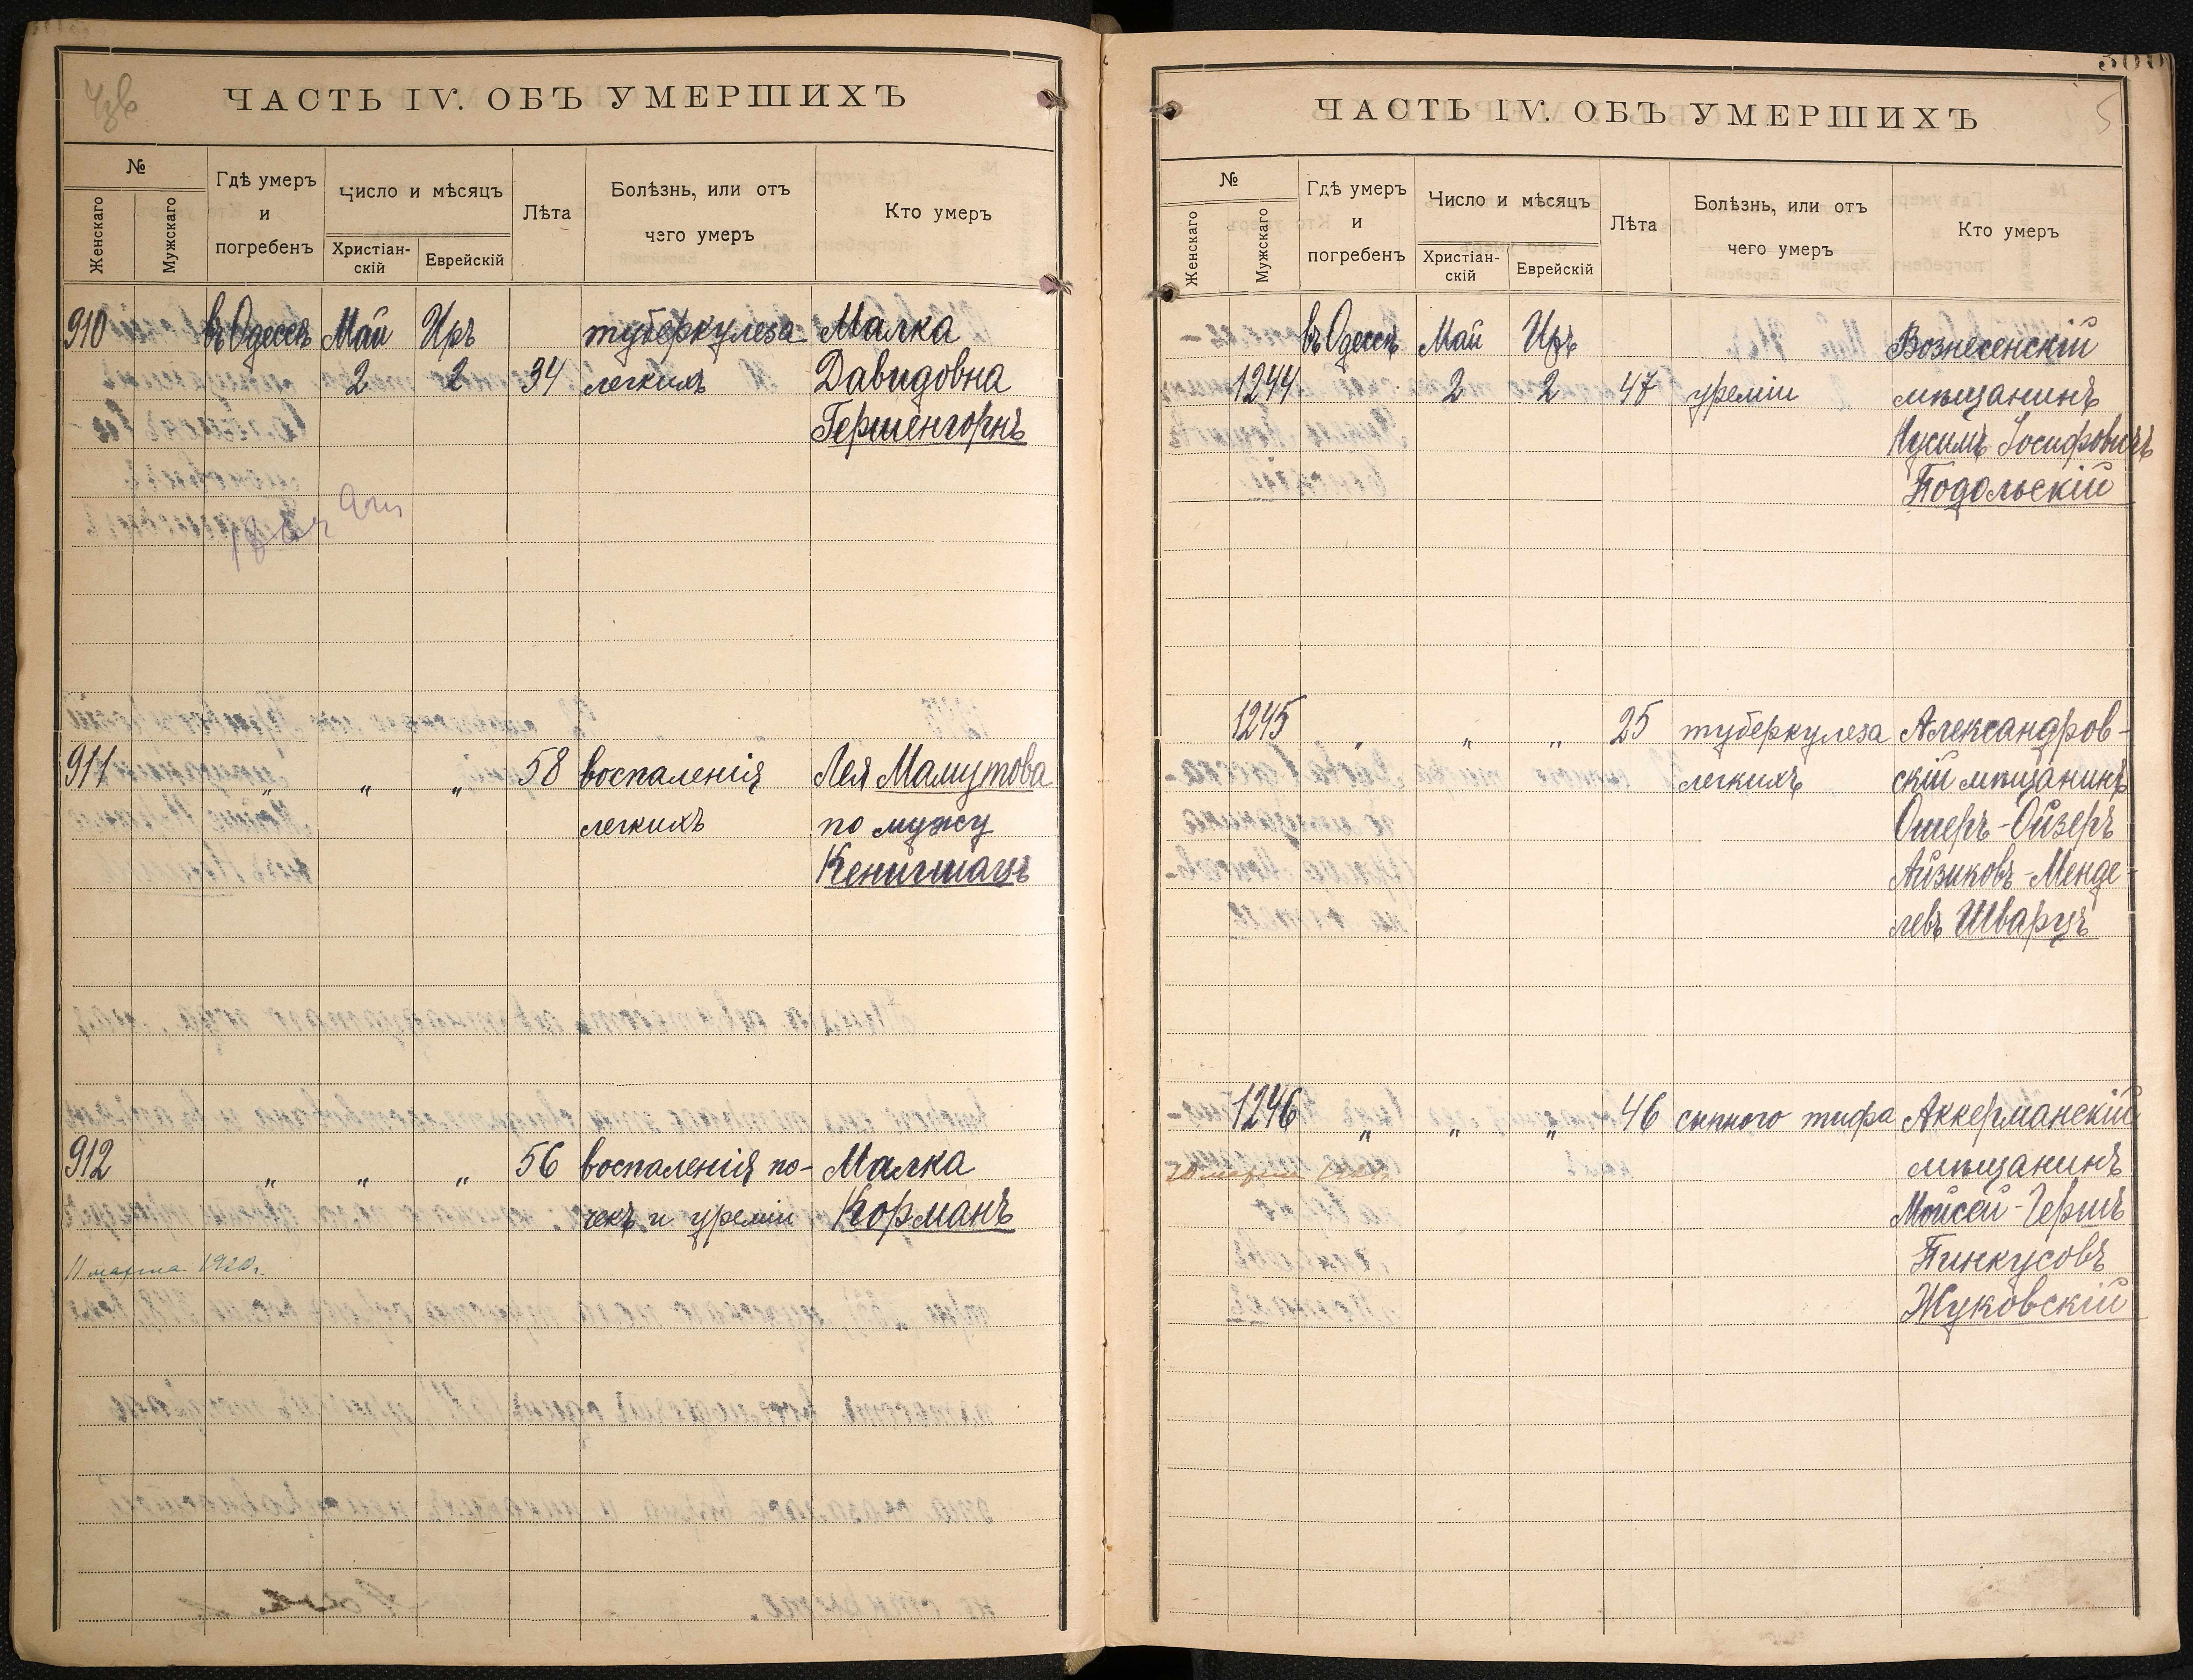 ЧАСТЬ IV. ОБЪ УМЕРШИХЪ
№
Женскаго
Мужскаго
Гдѣ умеръ
и
погребенъ
Число и мѣсяцъ
Христіан-
скій
Еврейскій
Лѣта
Болѣзнь, или отъ
чего умеръ
Кто умеръ
910 въ Одессѣ Май Иръ туберкулеза Малка
2 2 34 легкихъ Давидовна
Гершенгорнъ
911 " " " 58 воспаленія Лея Мамутова
легкихъ по мужу
Кенигшацъ
912 " " " 56 воспаленія по- Малка
чекъ и уреміи Корманъ
11 марта 1920г.
ЧАСТЬ IV. ОБЪ УМЕРШИХЪ
5
№
Женскаго
Мужскаго
Гдѣ умеръ
и
погребенъ
Число и мѣсяцъ
Христіан-
скій
Еврейскій
Лѣта
Болѣзнь, или отъ
чего умеръ
Кто умеръ
въ Одессѣ Май Иръ Вознесенскій
1244 2 2 47 уреміи мѣщанинъ
Нухимъ Іосифовичъ
Подольскій
1245 " " " 25 туберкулеза Александров-
легкихъ скій мѣщанинъ
Ошеръ-Ойзеръ
Айзиковъ-Менде-
левъ Шварцъ
1246 " " " 46 сыпного тифа Аккерманскій
20 марта мѣщанинъ
Мойсей-Гершъ
Пинкусовъ
Жуковскій